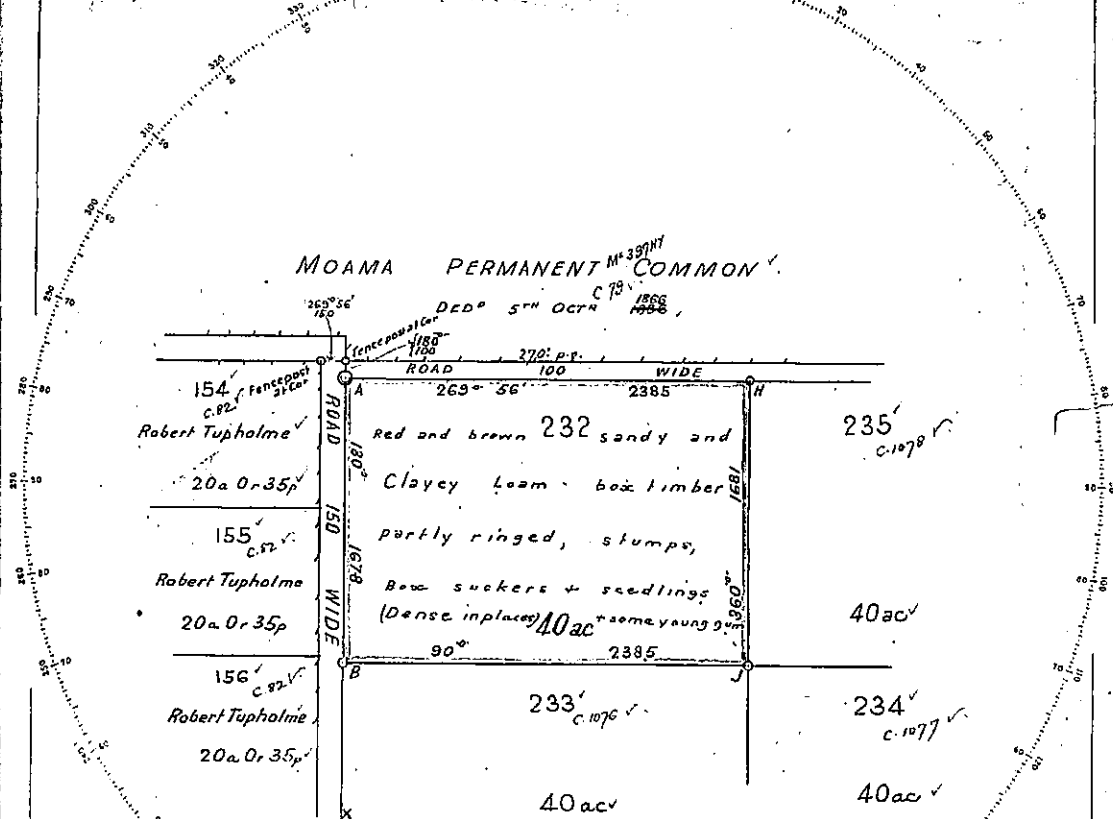 MOAMA PERMANENT COMMON
C 79
DEDD 5TH OCTR 1866
1886
269° 56'
150
fence post at Cor
√180°
100
270° p.g.
ROAD 100 WIDE
A 269° 56' 2385 H
154
C.82
Fence post at Cor
Robert Tupholme
20a 0r 35p
155
C.82
Robert Tupholme
20a 0r 35p
156
C.82
Robert Tupholme
20a 0r 35p
ROAD 150 WIDE
180° 1678
Red and brown 232 sandy and
Clayey Loam - box timber
partly ringed, stumps,
Box suckers + seedlings
(Dense in places) 40ac + some young gum
1681
360°
B 90° 2385 J
235
C.1078
40ac
233
C.1076
40ac
234
C.1077
40ac
X